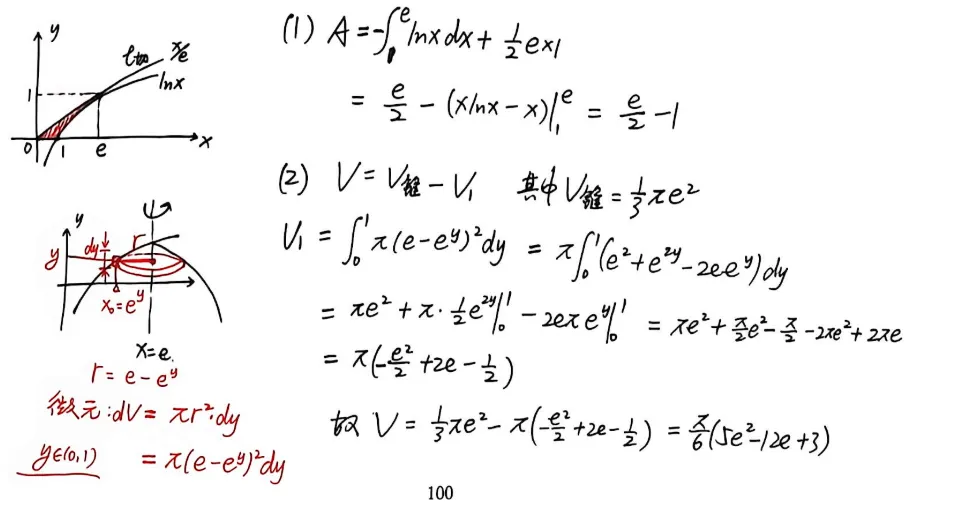 y
l切
x/e
lnx
1
0 1 e x
(1) A = -∫₁ᵉ lnx dx + 1/2 e×1
= e/2 - (xlnx - x)|₁ᵉ = e/2 - 1
(2) V = V锥 - V₁ 其中 V锥 = 1/3 πe²
V₁ = ∫₀¹ π(e - e^y)² dy = π∫₀¹ (e² + e^{2y} - 2e·e^y) dy
= πe² + π · 1/2 e^{2y}|₀¹ - 2eπ e^y|₀¹ = πe² + π/2 e² - π/2 - 2πe² + 2πe
= π(-e²/2 + 2e - 1/2)
故 V = 1/3 πe² - π(-e²/2 + 2e - 1/2) = π/6 (5e² - 12e + 3)
y
dy r
y
x₀ = e^y
x = e.
r = e - e^y
微元: dV = πr²·dy
y∈(0,1) = π(e - e^y)² dy
100